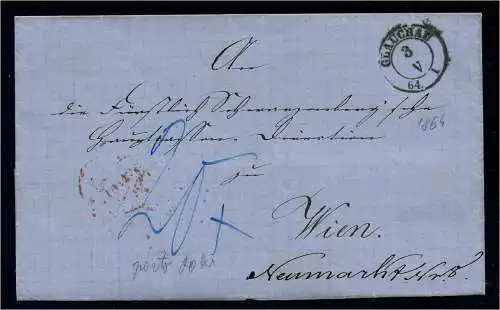 GLAUCHAU
3
V
64.
An
die Fürstlich Schwarzenberg'sche
Hauptkassen Direction
zu
Wien.
Neumarkt Nr 8.
1864
20
porto